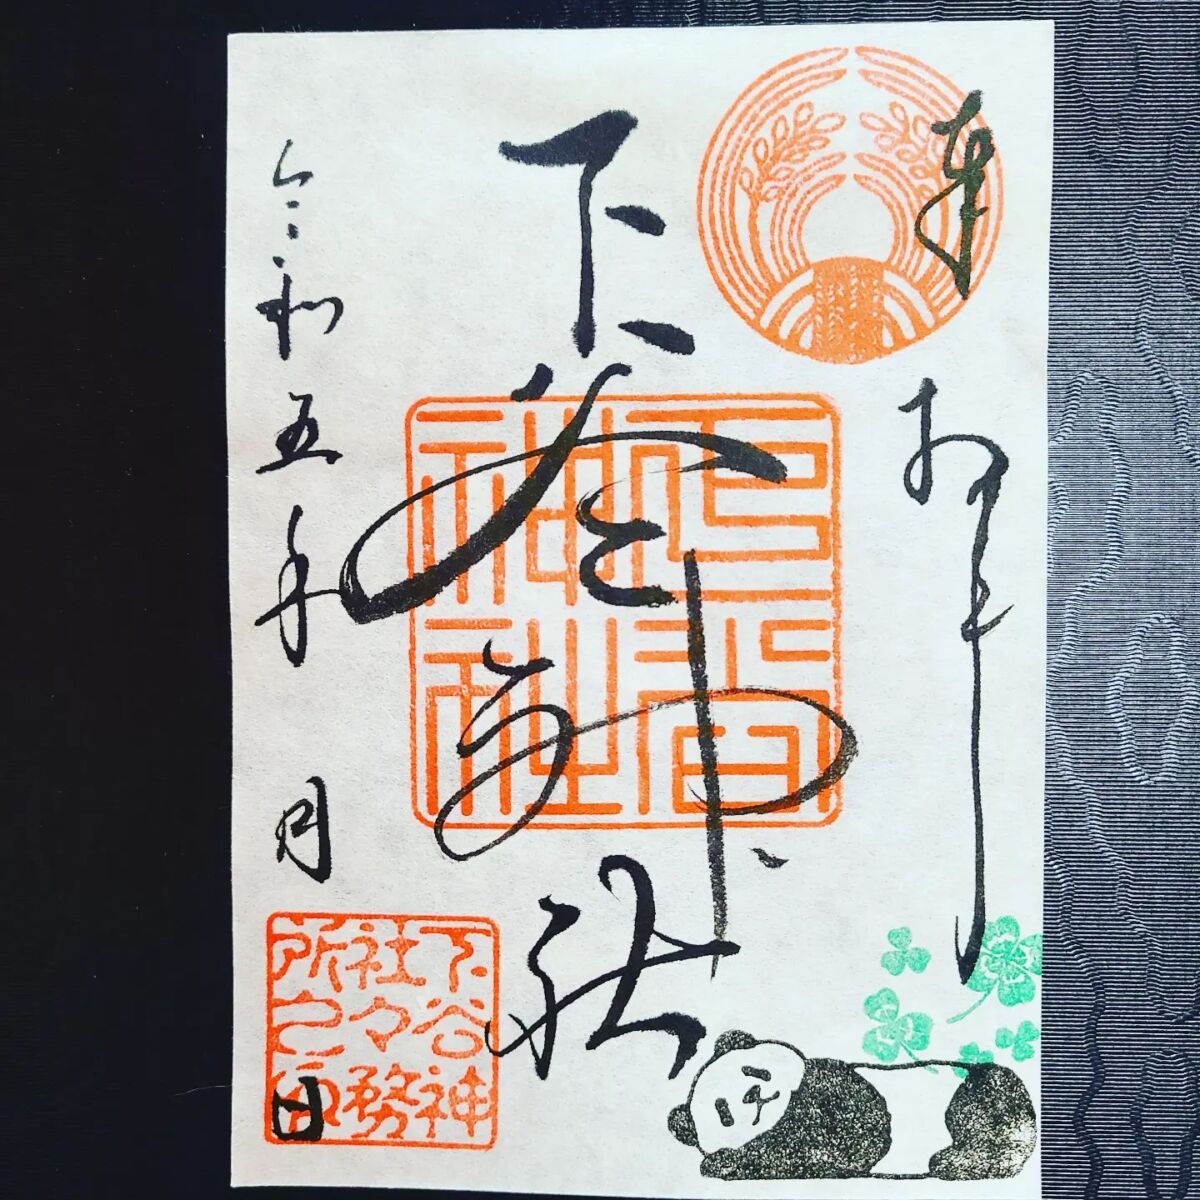 奉拝
下谷神社
下谷神社
令和五年 月 日
下谷神社々務所之印